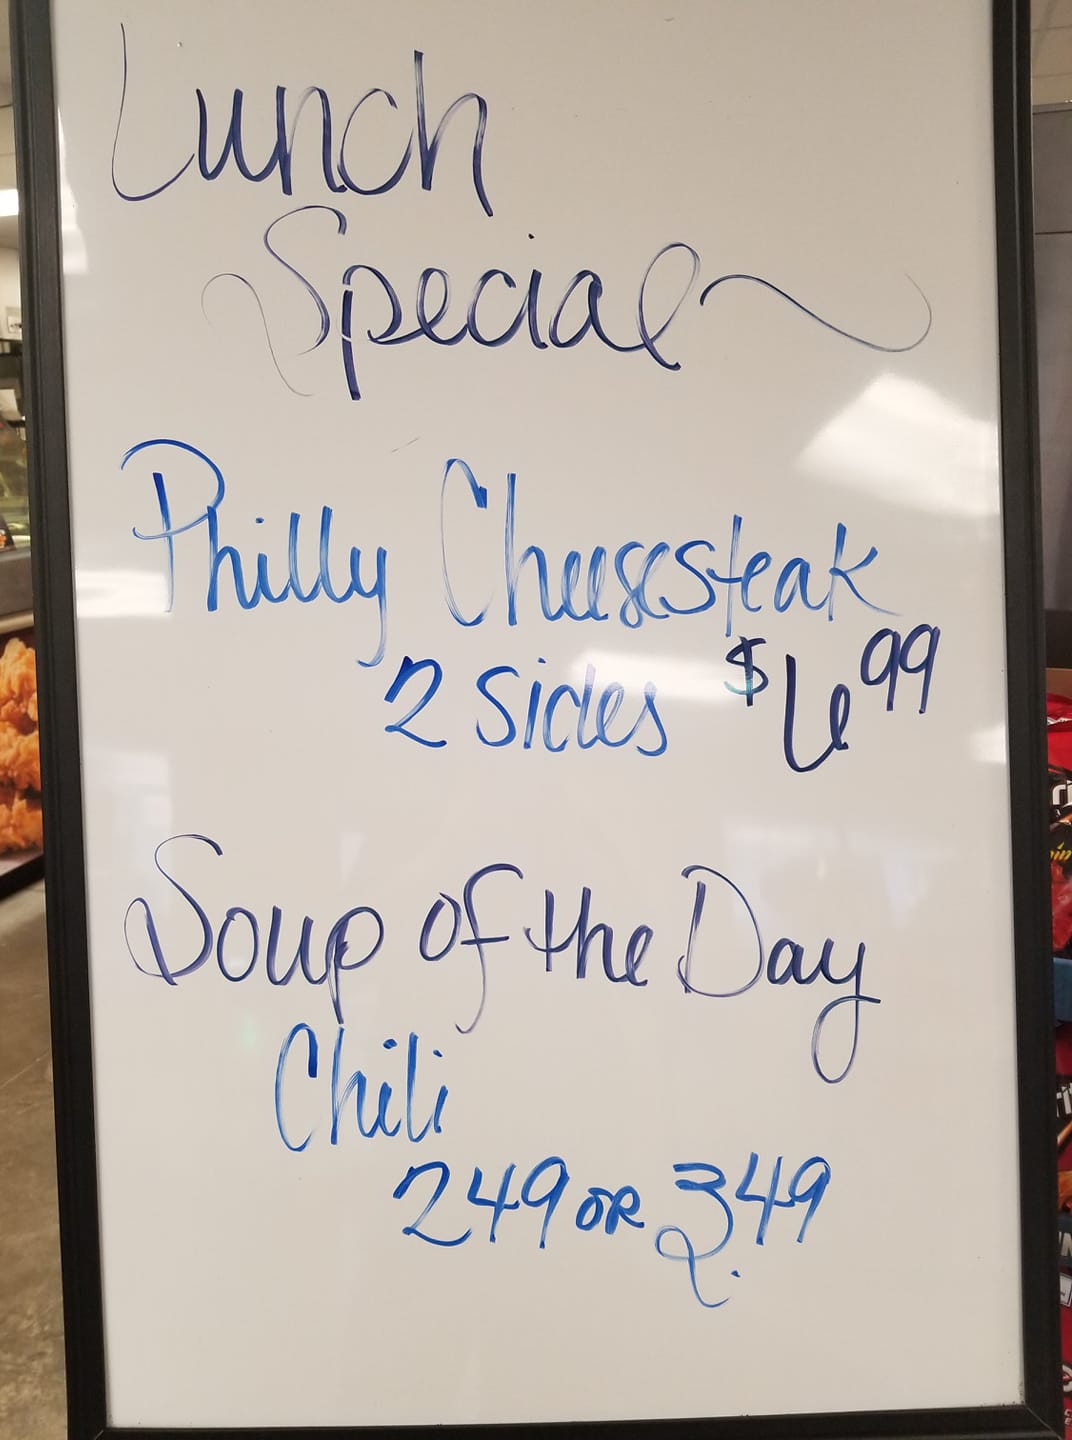 Lunch
Special
Philly Cheesesteak
2 Sides $6 99
Soup of the Day
Chili
249 OR 349